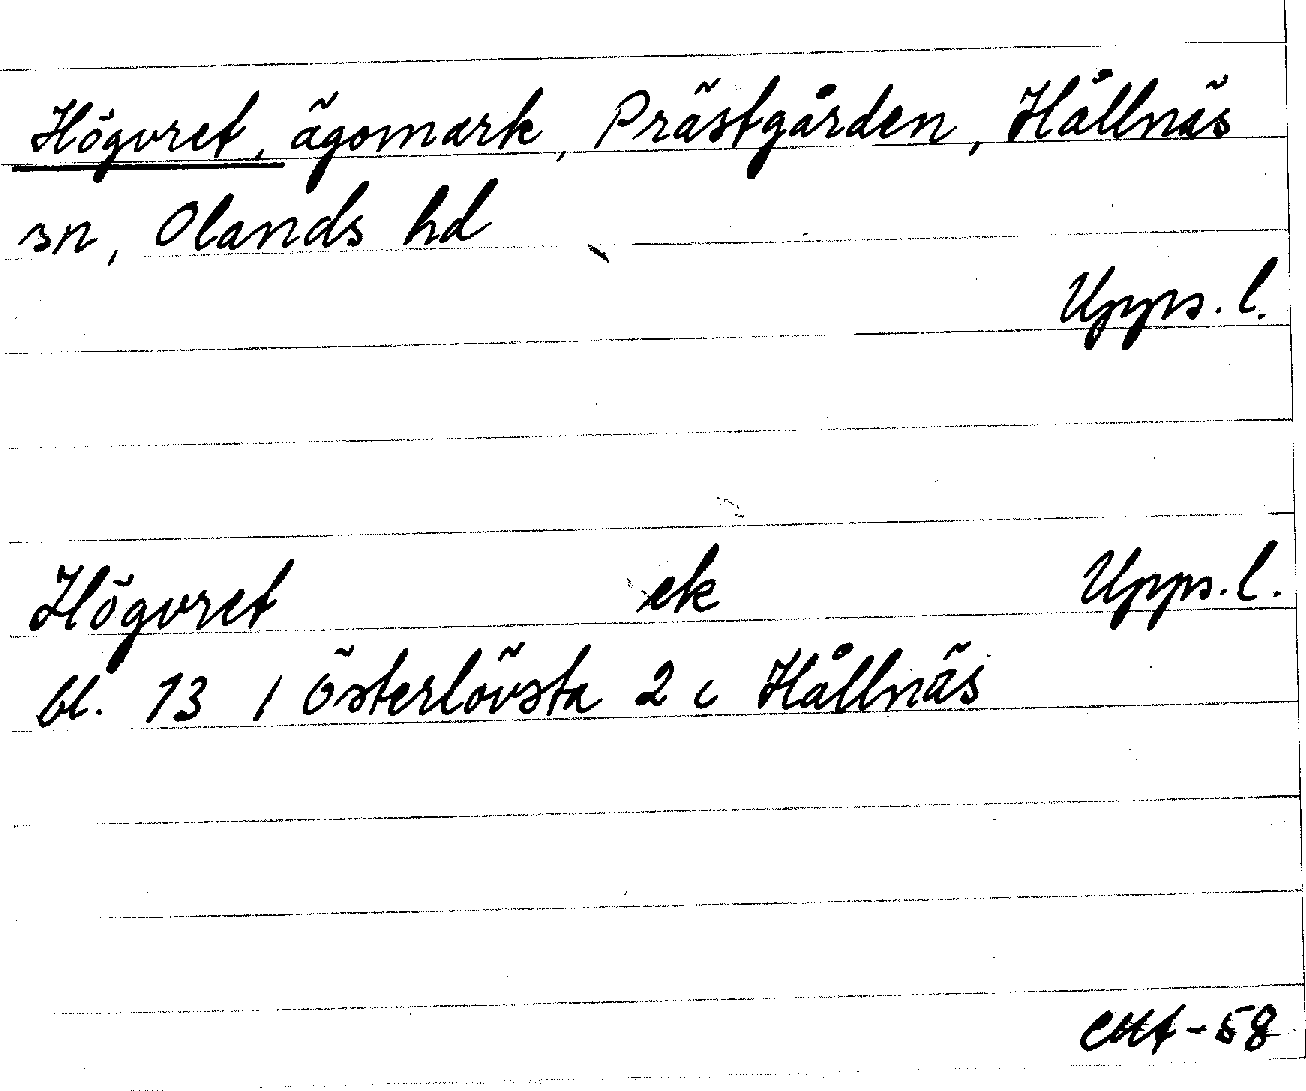 Högvret, ägomark, Prästgården, Hållnäs
sn, Olands hd
Upps. l.
Högvret ek Upps. l.
bl. 13 / Österlövsta 2 c Hållnäs
-58